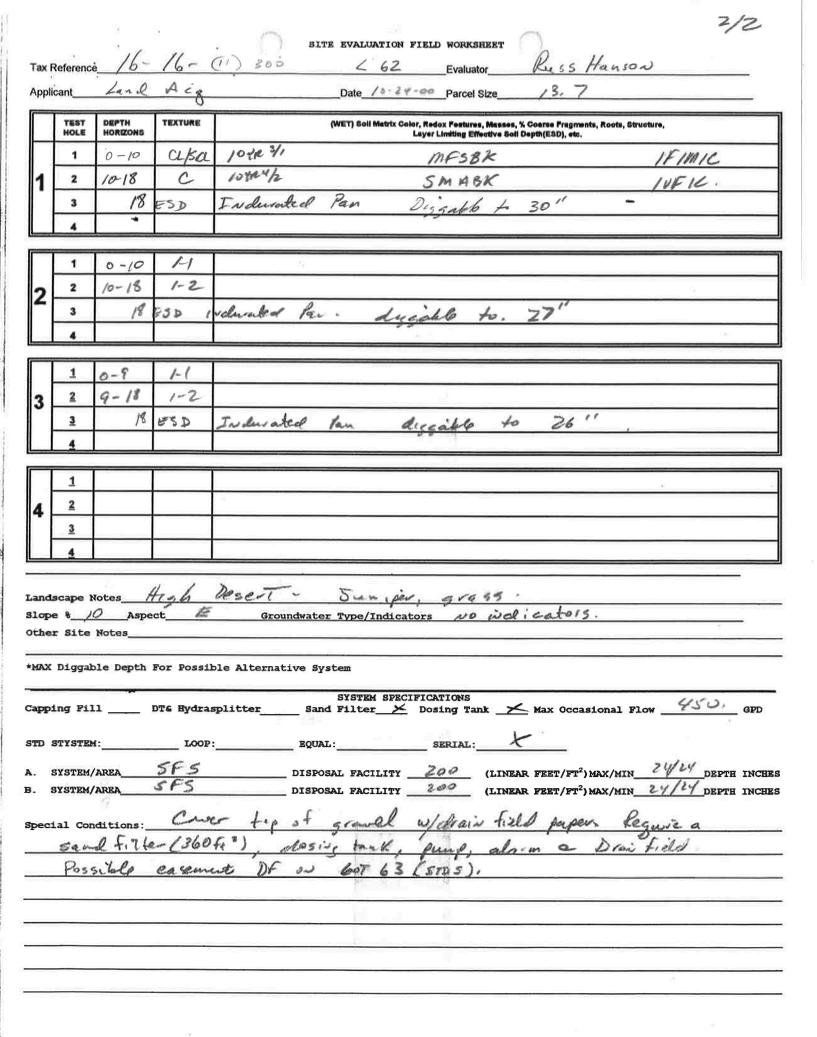 2/2
SITE EVALUATION FIELD WORKSHEET
Tax Reference 16-16-(11) 300 L 62 Evaluator Russ Hanson
Applicant Land Acq Date 10-24-00 Parcel Size 13.7
TEST HOLE DEPTH HORIZONS TEXTURE (WET) Soil Matrix Color, Redox Features, Masses, % Coarse Fragments, Roots, Structure, Layer Limiting Effective Soil Depth(ESD), etc.
1
1 0-10 CL/SCL 10YR 3/1 MFSBK 1F1M1C
2 10-18 C 10YR 4/2 SMABK 1VF1C.
3 18 ESD Indurated Pan Diggable to 30" -
4
2
1 0-10 1-1
2 10-18 1-2
3 18 ESD indurated Pan. diggable to. 27"
4
3
1 0-9 1-1
2 9-18 1-2
3 18 ESD Indurated Pan diggable to 26"
4
4
1
2
3
4
Landscape Notes High Desert - Juniper, grass.
Slope % 10 Aspect E Groundwater Type/Indicators no indicators.
Other Site Notes
*MAX Diggable Depth For Possible Alternative System
SYSTEM SPECIFICATIONS
Capping Fill DT& Hydrasplitter Sand Filter X Dosing Tank X Max Occasional Flow 450. GPD
STD STYSTEM: LOOP: EQUAL: SERIAL: X
A. SYSTEM/AREA SFS DISPOSAL FACILITY 200 (LINEAR FEET/FT²)MAX/MIN 24/24 DEPTH INCHES
B. SYSTEM/AREA SFS DISPOSAL FACILITY 200 (LINEAR FEET/FT²)MAX/MIN 24/24 DEPTH INCHES
Special Conditions: Cover top of gravel w/drain field paper. Require a
sand filter (360ft²), dosing tank, pump, alarm & Drain field
Possible easement DF on LOT 63 (STDS).